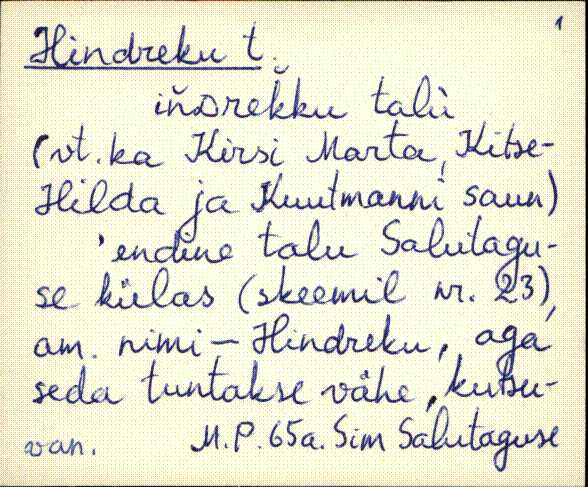 1
Hindreku t.
iňDrek̆ku talù
(vt. ka Kirsi Marta, Kitse-
Hilda ja Kuutmanni saun)
'endine talu Salutagu-
se külas (skeemil nr. 23),
am. nimi - Hindreku, aga
seda tuntakse vähe, kutsu-
van. M.P. 65a. Sim Salutaguse